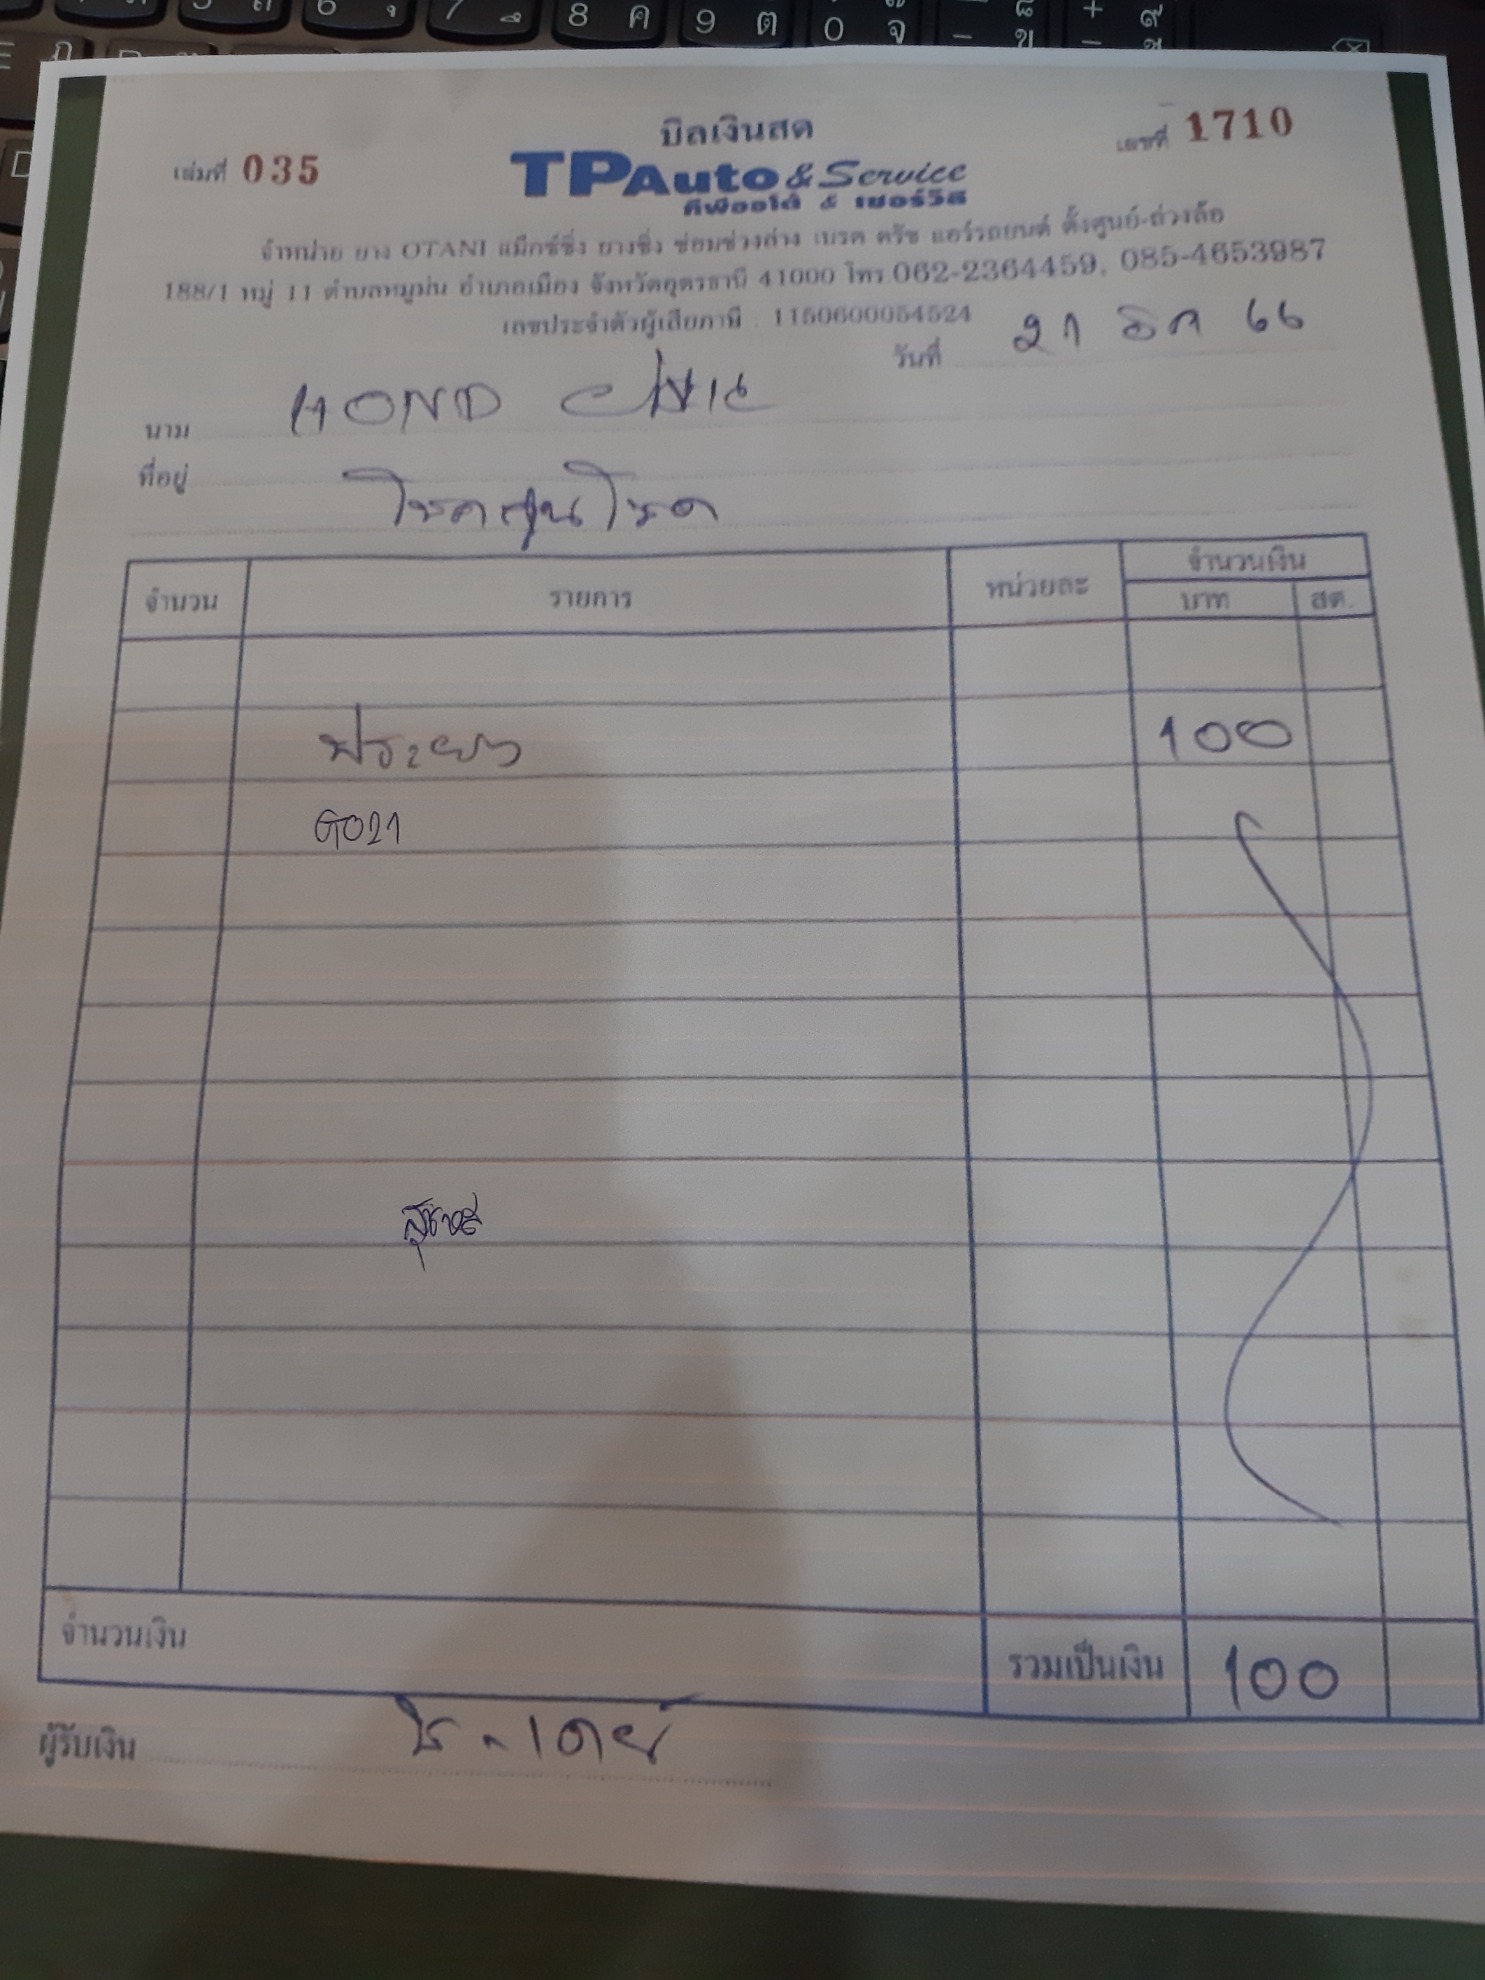 บิลเงินสด
เล่มที่ 035
เลขที่ 1710
TPAuto & Service
ทีพีออโต้ & เซอร์วิส
จำหน่าย ยาง OTANI แม็กซ์ซิ่ง ยางซิ่ง ซ่อมช่วงล่าง เบรค ครัช แอร์รถยนต์ ตั้งศูนย์-ถ่วงล้อ
188/1 หมู่ 11 ตำบลหมูม่น อำเภอเมือง จังหวัดอุดรธานี 41000 โทร.062-2364459, 085-4653987
เลขประจำตัวผู้เสียภาษี : 1150600054524
วันที่ 21 ธค 66
นาม HOND
ที่อยู่
จำนวน รายการ หน่วยละ จำนวนเงิน
บาท สต.
ปะยาง 100
G021
จำนวนเงิน รวมเป็นเงิน 100
ผู้รับเงิน